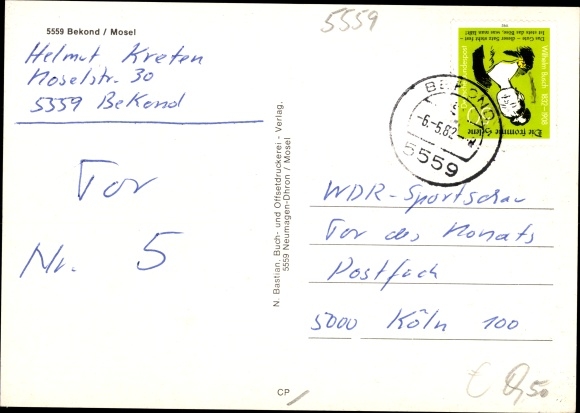 5559
5559 Bekond / Mosel
Helmut Kreten
Moselstr. 30
5559 Bekond
Tor
Nr. 5
N. Bastian, Buch- und Offsetdruckerei - Verlag,
5559 Neumagen-Dhron / Mosel
Das Gute - dieser Satz steht fest -
ist stets das Böse, was man läßt!
Wilhelm Busch 1832-1908
Die fromme Helene
BEKOND
-6.-5.82
5559
WDR-Sportschau
Tor des Monats
Postfach
5000 Köln 100
CP
€ 0,50